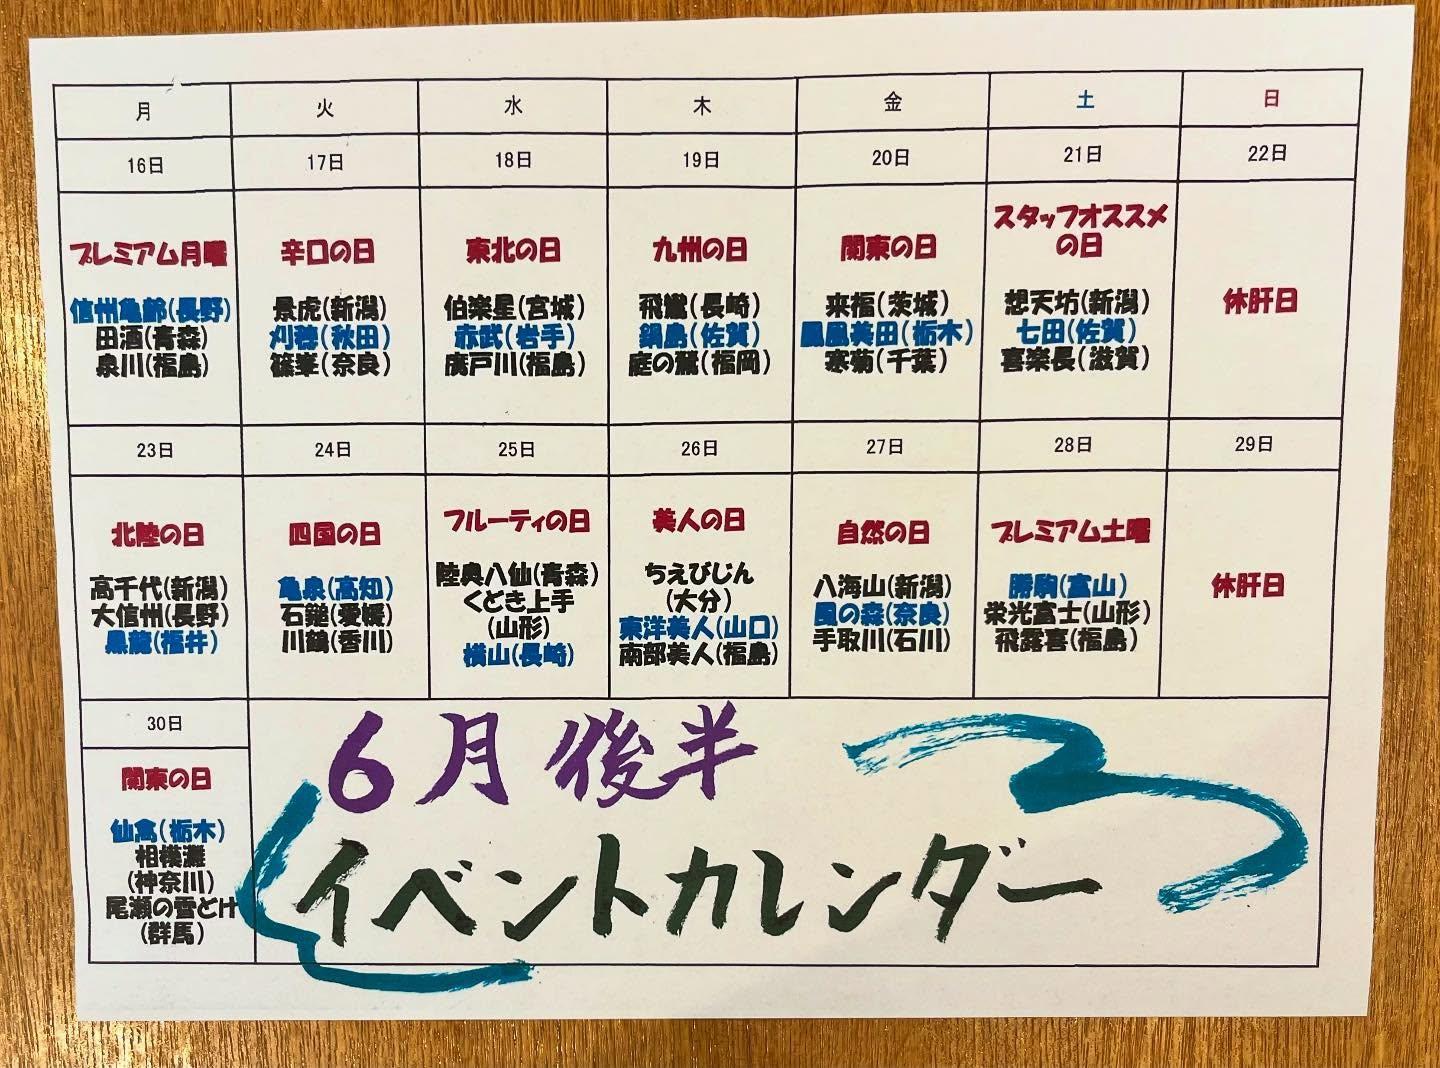 月 火 水 木 金 土 日
16日 17日 18日 19日 20日 21日 22日
プレミアム月曜
信州亀齢(長野)
田酒(青森)
泉川(福島)
辛口の日
景虎(新潟)
刈穂(秋田)
篠峯(奈良)
東北の日
伯楽星(宮城)
赤武(岩手)
廣戸川(福島)
九州の日
飛鸞(長崎)
鍋島(佐賀)
庭の鶯(福岡)
関東の日
来福(茨城)
鳳凰美田(栃木)
寒菊(千葉)
スタッフオススメ
の日
想天坊(新潟)
七田(佐賀)
喜楽長(滋賀)
休肝日
23日 24日 25日 26日 27日 28日 29日
北陸の日
高千代(新潟)
大信州(長野)
黒龍(福井)
四国の日
亀泉(高知)
石鎚(愛媛)
川鶴(香川)
フルーティの日
陸奥八仙(青森)
くどき上手
(山形)
横山(長崎)
美人の日
ちえびじん
(大分)
東洋美人(山口)
南部美人(福島)
自然の日
八海山(新潟)
風の森(奈良)
手取川(石川)
プレミアム土曜
勝駒(富山)
栄光冨士(山形)
飛露喜(福島)
休肝日
30日
関東の日
仙禽(栃木)
相模灘
(神奈川)
尾瀬の雪どけ
(群馬)
6月後半
イベントカレンダー